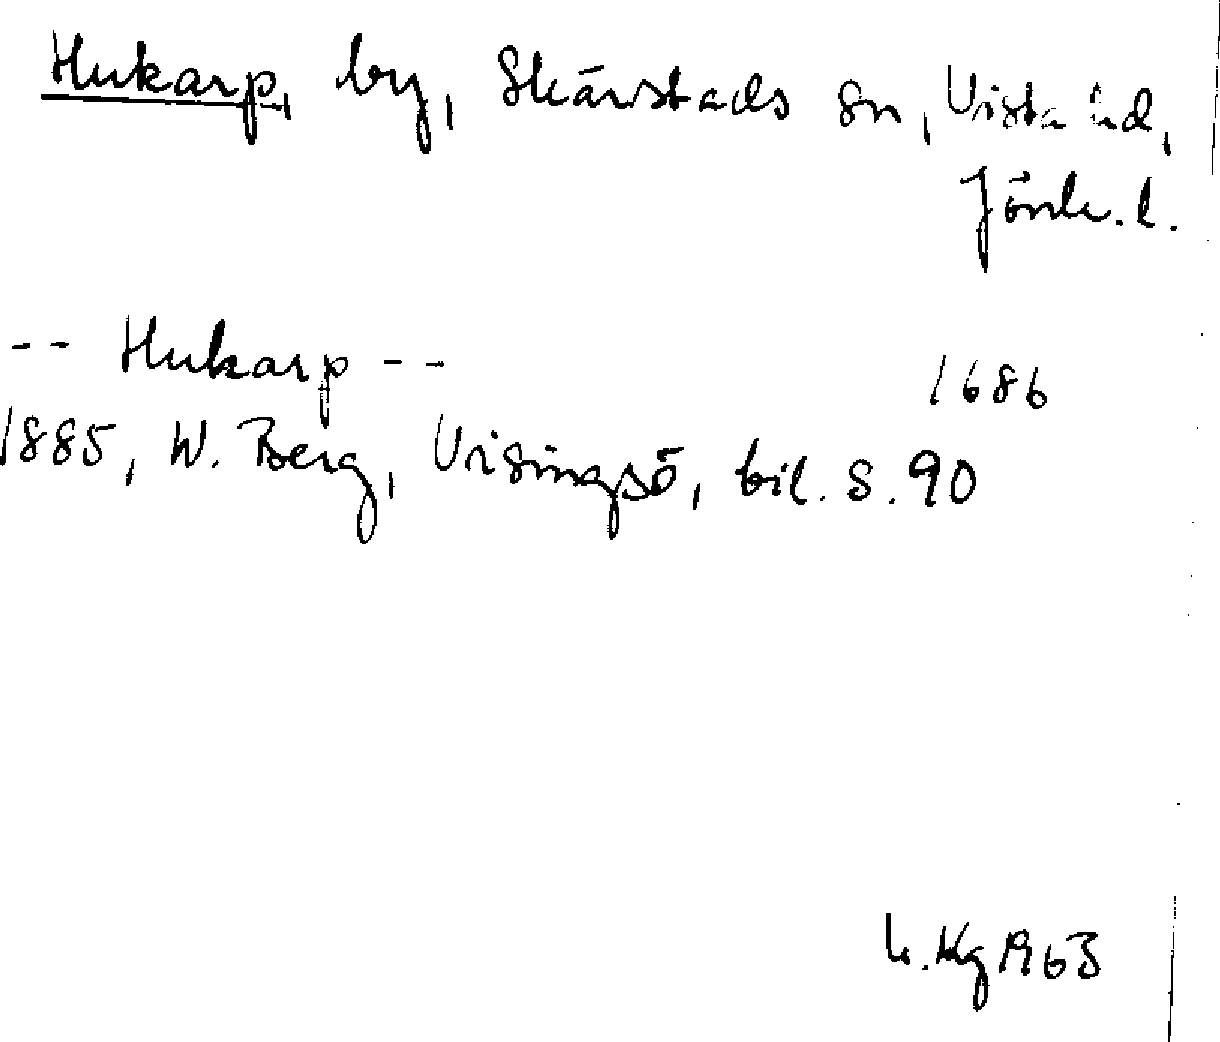 Hukarp, by, Skärstads sn, Vista hd,
Jönk. l.
-- Hukarp -- 1686
1885, W. Berg, Visingsö, bil. s. 90
Kg 1963